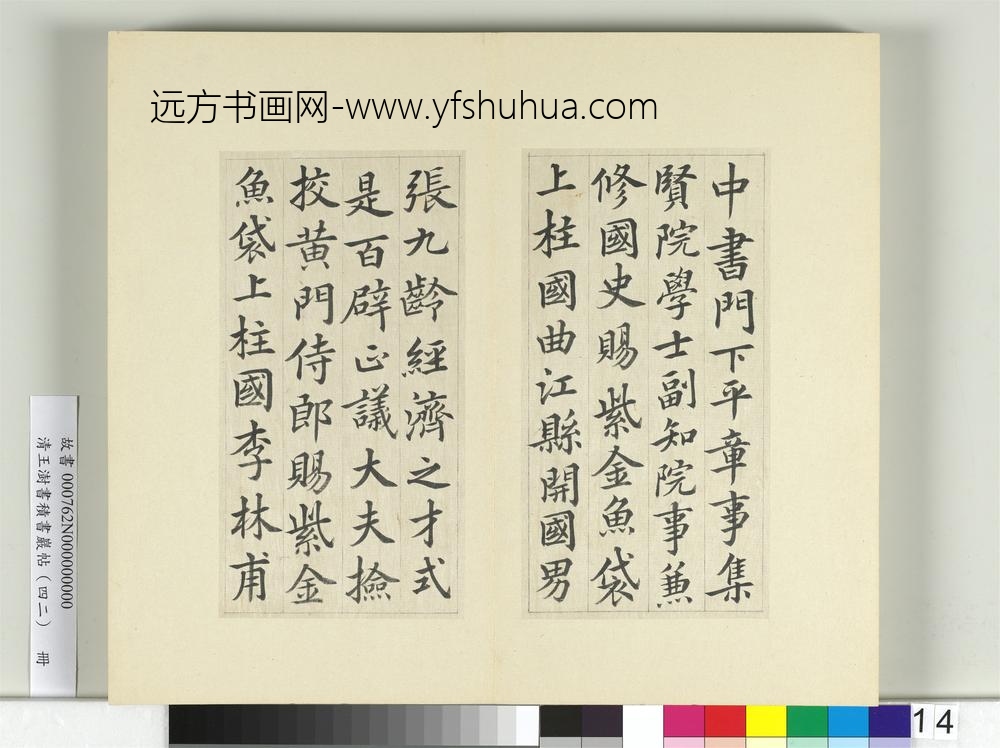 远方书画网-www.yfshuhua.com
中書門下平章事集
賢院學士副知院事兼
修國史賜紫金魚袋
上柱國曲江縣開國男
張九齡經濟之才式
是百辟正議大夫撿
挍黄門侍郎賜紫金
魚袋上柱國李林甫
故書 000762N000000000
清王澍書積書巖帖（四二） 冊
14